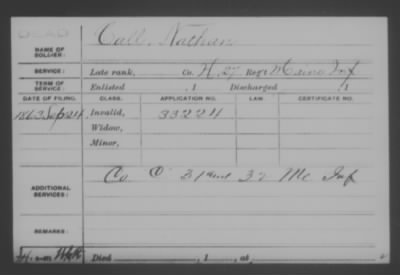 DEAD
NAME OF SOLDIER: Call, Nathan
SERVICE: Late rank, Co. H, 27 Reg't Maine Inf
TERM OF SERVICE: Enlisted , 1 Discharged , 1
DATE OF FILING. CLASS. APPLICATION NO. LAW. CERTIFICATE NO.
1863 Sep 24 Invalid, 33224
Widow,
Minor,
ADDITIONAL SERVICES: Co. 32 Me Inf
REMARKS:
Died , 1 , at